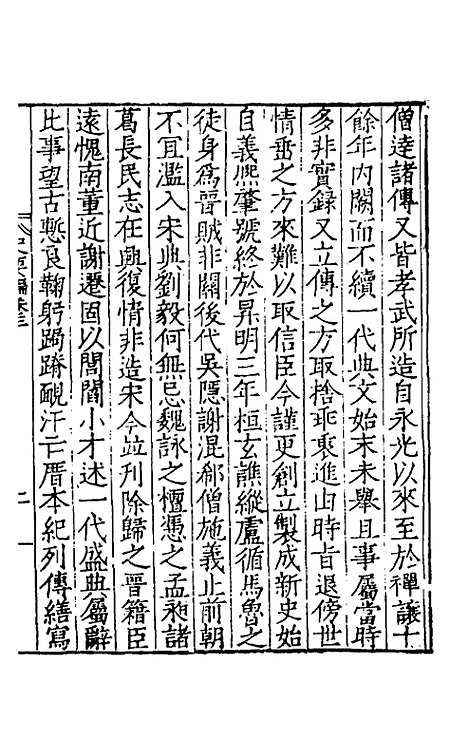 僧達諸傳又皆孝武所造自永光以來至於禪讓十
餘年内闕而不續一代典文始末未舉且事屬當時
多非實録又立傳之方取捨乖衷進由時旨退傍世
情垂之方來難以取信臣今謹更創立製成新史始
自義熙肇號終於昇明三年桓玄譙縱盧循馬魯之
徒身爲晉賊非關後代吳隱謝混郗僧施義止前朝
不宜濫入宋典劉毅何無忌魏詠之檀憑之孟昶諸
葛長民志在興復情非造宋今並刋除歸之晉籍臣
遠愧南董近謝遷固以閭閻小才述一代盛典屬辭
比事望古慙良鞠躬跼蹐靦汗亡厝本紀列傳繕寫
卷三
二